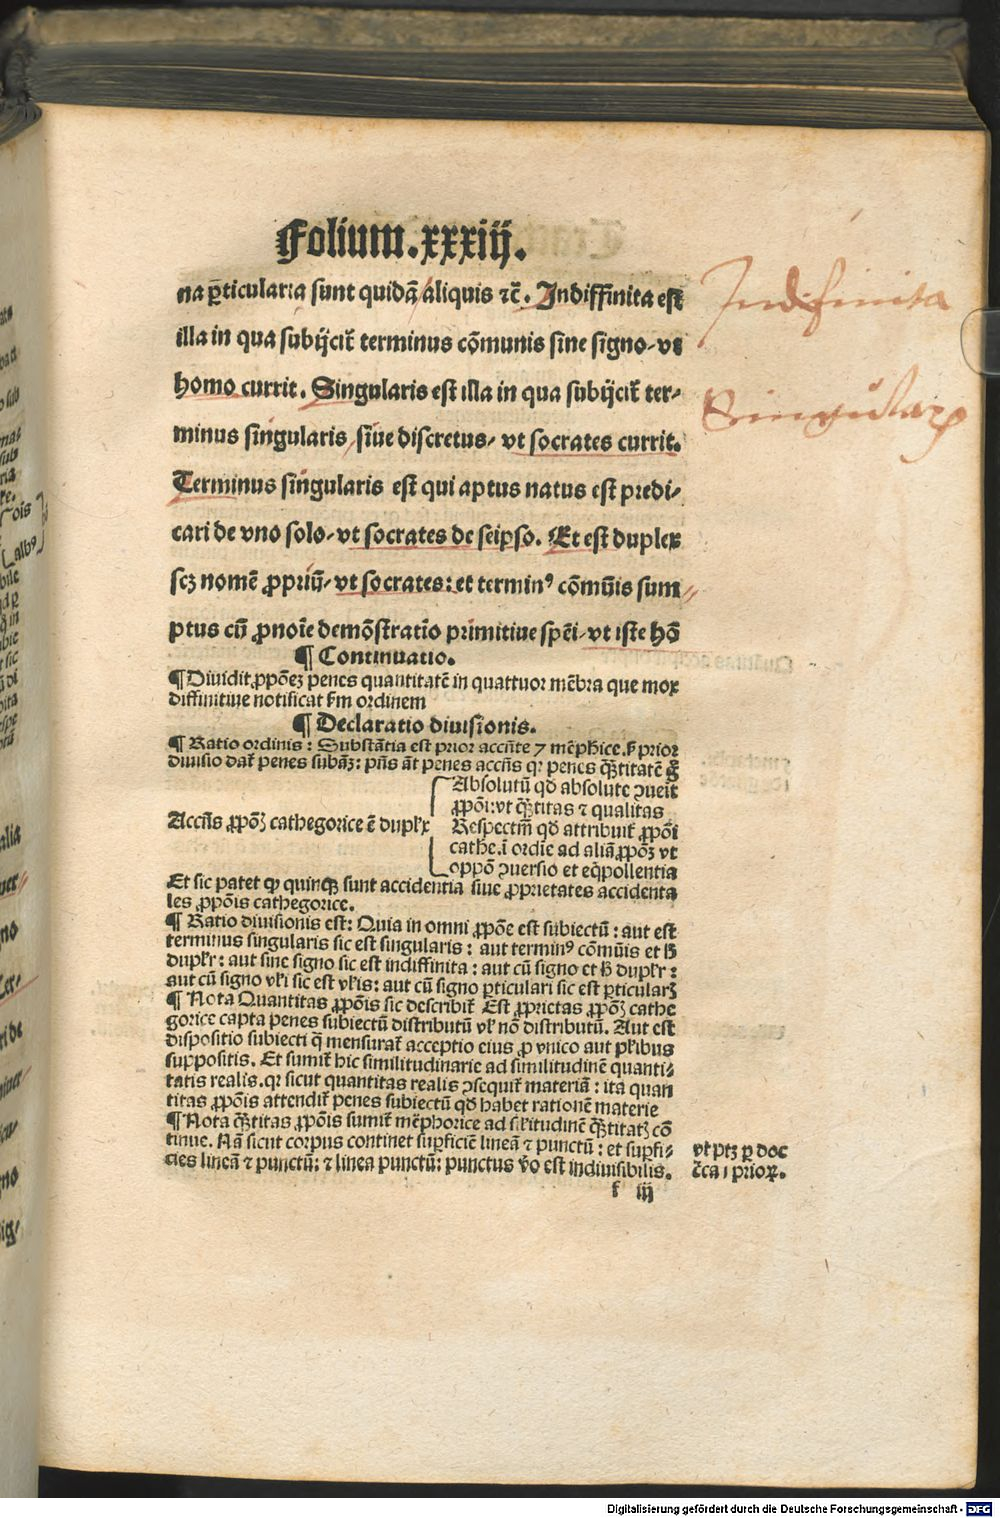 Folium.xxxiij.
na ꝑticularia sunt quidā aliquis ⁊c̄. Indiffinita est
illa in qua subijcit᷑ terminus cōmunis sine signo, vt
homo currit. Singularis est illa in qua subijcit᷑ ter-
minus singularis siue discretus, vt socrates currit.
Terminus singularis est qui aptus natus est predi-
cari de vno solo, vt socrates de seipso. Et est duplex
scꝫ nomē ꝓpriū, vt socrates: et terminꝰ cōmūis sum
ptus cū ꝓnoīe demōstratīo primitiue spēi, vt iste hō
¶ Continuatio.
¶ Diuidit ꝓpōeꝫ penes quantitatē in quattuor mēbra que mox
diffinitiue notificat ẜm ordinem
¶ Declaratio diuisionis.
¶ Ratio ordinis: Substātia est prior accn̄te ⁊ mēphice. ẜ prior
diuisio dat᷑ penes subāꝫ: pn̄s āt penes accn̄s qꝛ penes qꝫ̄titatē ḡ
Accn̄s ꝓpōꝫ cathegorice ē duplꝛx
Absolutū qđ absolute ↄueīt
ꝓpōi: vt qꝫ̄titas ⁊ qualitas
Respectiū qđ attribuit᷑ ꝓpōi
cathe. ī ordīe ad aliā ꝓpōꝫ vt
oppō ↄuersio et eq̄pollentia
Et sic patet ꝙ quinqꝫ sunt accidentia siue ꝓprietates accidenta
les ꝓpōis cathegorice.
¶ Ratio diuisionis est: Quia in omni ꝓpōe est subiectū: aut est
terminus singularis sic est singularis: aut terminꝰ cōmūis et ħ
duplꝛ: aut sine signo sic est indiffinita: aut cū signo et ħ duplꝛ:
aut cū signo vꝉi sic est vꝉis: aut cū signo ꝑticulari sic est ꝑticularꝫ
¶ Nota Quantitas ꝓpōis sic describit᷑ Est ꝓprietas ꝓpōꝫ cathe
gorice capta penes subiectū distributū vꝉ nō distributū. Aut est
dispositio subiecti q̄ mensurat᷑ acceptio eius ꝓ vnico aut pꝉibus
suppositis. Et sumit᷑ hic similitudinarie ad similitudinē quanti-
tatis realis. qꝛ sicut quantitas realis ↄsequit᷑ materiā: ita quan
titas ꝓpōis attendit᷑ penes subiectū qđ habet rationē materie
¶ Nota qꝫ̄titas ꝓpōis sumit᷑ mēphorice ad sꝉitudinē qꝫ̄titatꝫ cō
tinue. Nā sicut corpus continet suꝑficiē lineā ⁊ punctū: et suꝑfi-
cies lineā ⁊ punctū: ⁊ linea punctū: punctus ṽo est indiuisibilis.
f iij
Indifinita
Singularis
vt ptꝫ ꝑ doc
prioꝝ.
Digitalisierung gefördert durch die Deutsche Forschungsgemeinschaft - DFG